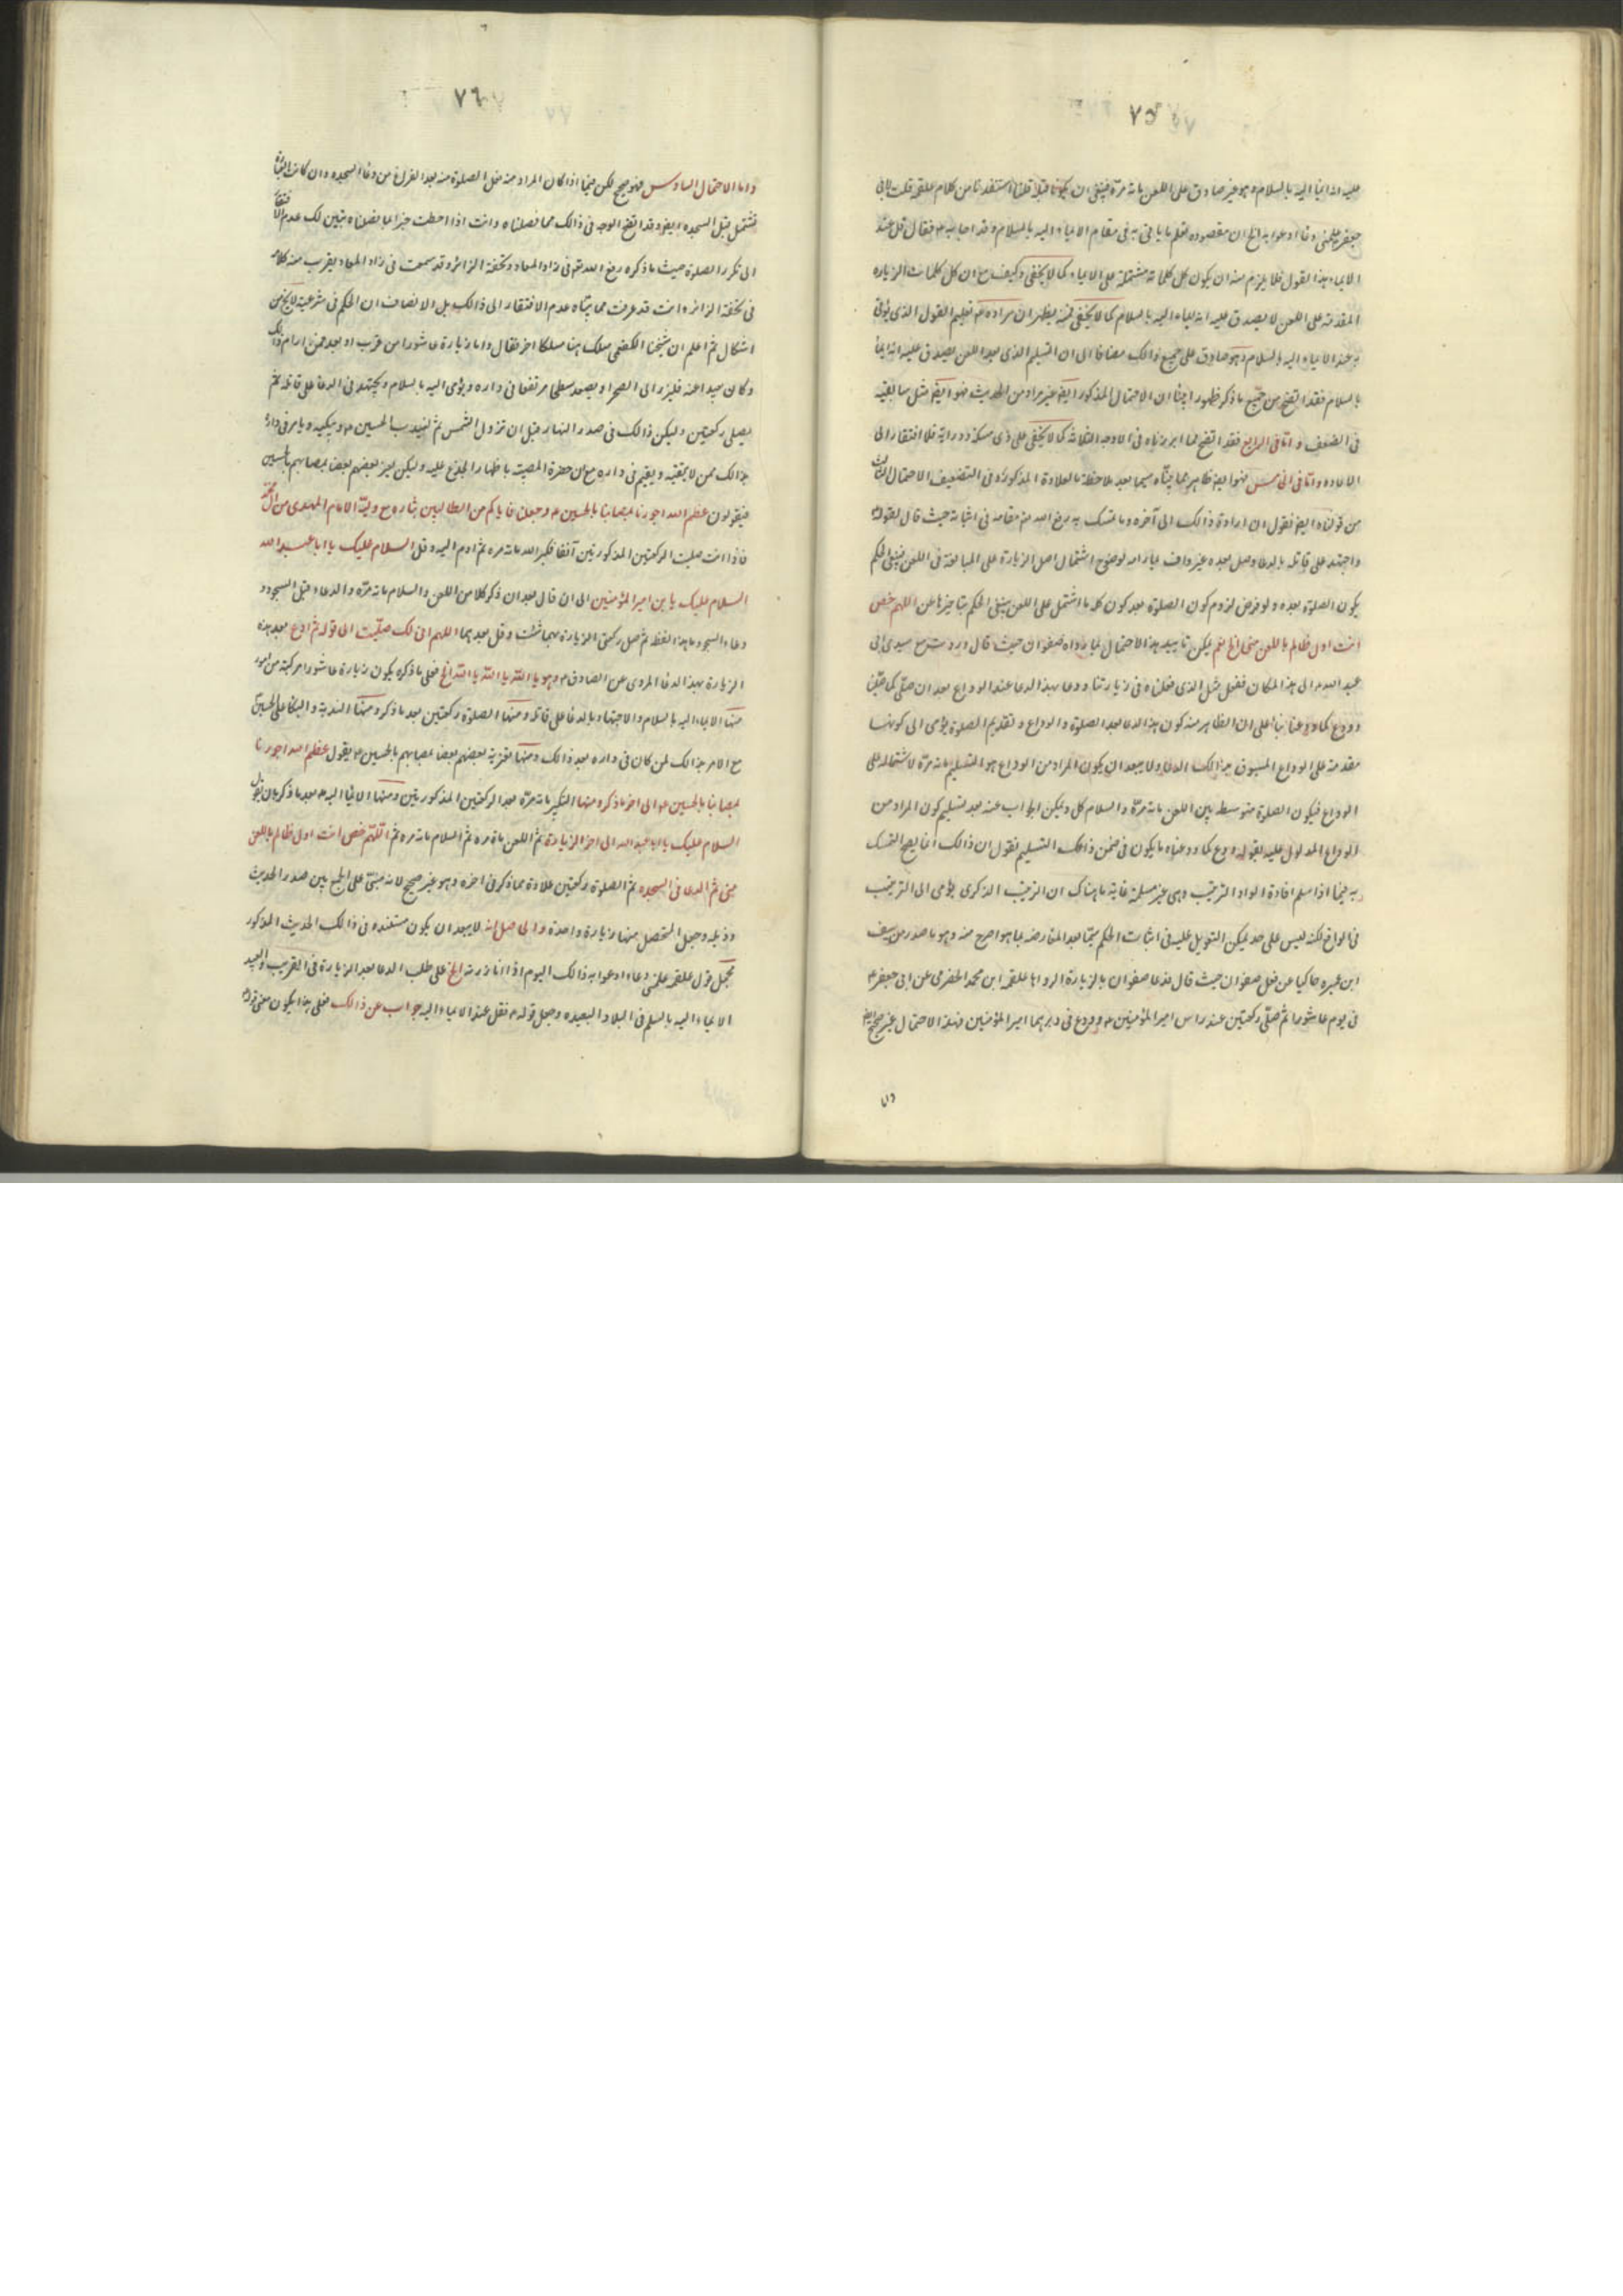 ٧٥
عليه انه ايماء اليه بالسلام وهو غير صادق على اللعن مائة مرّة فينبغى ان يكونا قبله قلنا استفدنا من كلام علقمه قلت لابى
جعفر علّمنى دعاء ادعو به الخ ان مقصوده تعلم ما ياتى به فى مقام الايماء اليه بالسلام وقد اجابه فقال قل عند
الايماء هذا القول فلا يلزم منه ان يكون كل كلماته مشتملة على الايماء كما لا يخفى وكيف مع ان كل كلمات الزياره
المقدمة على اللعن لا يصدق عليه انه ايماء اليه بالسلام كما لا يخفى فمنه يظهر ان مراده تعليم القول الذى يؤتى
به عند الايماء اليه بالسلام وهو صادق على جميع ذالك مضافا الى ان التسليم الذى بعد اللعن يصدق عليه انه ايماء
بالسلام فقد اتضح من جميع ما ذكر ظهور ان الاحتمال المذكور ايضا غير مراد من الحديث فهو ايضا مثل سابقيه
فى الضعف و امّا فى الرابع فقد اتضح مما ابرزناه فى الاوجه الثلاثه كما لا يخفى على ذى مسكة ودراية فلا افتقار الى
الاعاده وامّا فى الخامس فهو ايضا ظاهر مما بيناه سيما بعد ملاحظة العلاوة المذكورة فى التضعيف الاحتمال الثالث
من قولنا وايضا نقول ان ارادة ذالك الى آخره وما تمسك به رفع الله مقامه فى اثباته حيث قال لقوله
واجتهد على قاتله بالدعا وصل بعده غير واف بمرامه لوضوح اشتمال اصل الزيارة على المبالغة فى اللعن فينبغى الحكم
بكون الصلوة بعده ولو فرض لزوم كون الصلوة بعد كون كل ما اشتمل على اللعن ينبغى الحكم بتاخيرها عن اللهم خص
انت اول ظالم باللعن منى الخ نعم يمكن تاييد هذا الاحتمال بما رواه صفوان حيث قال وردت مع سيدى ابى
عبد الله الى هذا المكان ففعل مثل الذى فعلناه فى زيارتنا ودعا بهذا الدعا عند الوداع بعد ان صلّى كما صلّينا
وودع كما ودعنا بناء على ان الظاهر منه كون هذا الدعا بعد الصلوة والوداع وتقديم الصلوة يؤمى الى كونها
مقدمة على الوداع المسبوق بذالك الدعا ولا يبعد ان يكون المراد من الوداع هو التسليم مائة مرّة لاشتماله على
الوداع فيكون الصلوة متوسطة بين اللعن مائة مرّة والسلام كل ويمكن الجواب عنه بعد تسليم كون المراد من
الوداع المدلول عليه بقوله وودع كما ودعناه ما يكون فى ضمن ذالك التسليم نقول ان ذالك انما يصح التمسك
به فيما اذا سلم افادة الواو الترتيب وهى غير مسلمة غاية ما هناك ان الترتيب الذكرى يؤمى الى الترتيب
فى الواقع لكنه ليس على حد يمكن التعويل عليه فى اثبات الحكم سيّما بعد المعارضه بما هو اصرح منه وهو ما صدر من سيف
ابن عميره حاكيا عن فعل صفوان حيث قال فدعا صفوان بالزيارة الرواها علقمه ابن محمد الحضرمى عن ابى جعفر
فى يوم عاشورا ثم صلّى ركعتين عند راس امير المؤمنين وودع فى دبرهما امير المؤمنين فهذا الاحتمال غير صحيح ايضا
واما
٧٦
واما الاحتمال السادس فهو صحيح لكن فيما اذا كان المراد منه فعل الصلوة منه بعد الفراغ من دعاء السجده وان كانت
فتشمل قبل السجده ايضا وقد اتضح الوجه فى ذالك مما فصلناه وانت اذا احطت خبرا بما فصلناه تبين لك عدم الافتقار
الى تكرر الصلوة حيث ما ذكره رفع الله قدره فى زاد المعاد وتحفة الزائر وقد سمعت فى زاد المعاد يقرب منه كلامه
فى تحفة الزائر وانت قد عرفت مما بيناه عدم الافتقار الى ذالك بل الانصاف ان الحكم فى شرعيته لا يخلو من
اشكال ثم اعلم ان شيخنا الكفعمى سلك هنا مسلكا اخر فقال واما زيارة عاشورا من قرب او بعد فمن اراد ذالك
وكان بعيدا عنه فليبرز الى الصحراء او يصعد سطحا مرتفعا فى داره ويؤمى اليه بالسلام ويجتهد فى الدعا على قاتله ثم
يصلى ركعتين وليكن ذالك فى صدر النهار قبل ان تزول الشمس ثم ليندب الحسين ويبكيه ويامر فى داره
بذالك ممن لا يتقيه ويقيم فى داره مع من حضره المصيبة باظهار الجزع عليه وليكن يعز بعضهم بعضا بمصابهم بالحسين
فيقولون عظم الله اجورنا بمصابنا بالحسين وجعلنا واياكم من الطالبين بثاره مع وليه الامام المهدى من آل محمد
فاذا انت صليت الركعتين المذكورتين آنفا فكبر الله مائة مره ثم اوم اليه وقل السلام عليك يا ابا عبد الله
السلام عليك يا بن امير المؤمنين الى ان قال بعد ان ذكر كلا من اللعن والسلام مائة مرّة والدعاء قبل السجود و
دعاء السجود ما هذا لفظه ثم صل ركعتى الزيارة بهما شئت وقل بعدهما اللهم انى لك صلّيت الى قوله ثم ادع بعد هذه
الزيارة بهذا الدعا المروى عن الصادق وهو يا اللّه يا اللّه يا اللّه الخ فعلى ما ذكره يكون زيارة عاشورا مركبة من امور
منها الايماء اليه بالسلام والاجتهاد بالدعا على قاتله ومنها الصلوة ركعتين بعد ما ذكر ومنها الندبة والبكا على الحسين
مع الامر بذالك لمن كان فى داره بعد ذالك ومنها تعزية بعضهم بعضا بمصابهم بالحسين يقول عظم الله اجورنا
بمصابنا بالحسين الى اخر ما ذكر ومنها التكبير مائة مرّة بعد الركعتين المذكورتين ومنها الايماء اليه بعد ما ذكر بان يقول
السلام عليك يا ابا عبد الله الى اخر الزيارة ثم اللعن مائة مره ثم السلام مائة مره ثم اللّهم خص انت اول ظالم باللعن
منى ثم الدعا فى السجده ثم الصلوة ركعتين علاوة مما ذكر فى اخره وهو غير صحيح لانه مبنى على الجمع بين صدر الحديث
وذيله وجعل المتحصل منهما زيارة واحدة والحاصل انه لا يبعد ان يكون مستنده فى ذالك الحديث المذكور
بجعل قول علقمه علمنى دعاء ادعو به ذالك اليوم اذا انا زرته الخ على طلب الدعا بعد الزيارة فى القريب والبعيد
الايماء اليه بالسلم فى البلاد البعيده وجعل قوله فقل عند الايماء اليه جواب عن ذالك فعلى هذا يكون معنى قوله